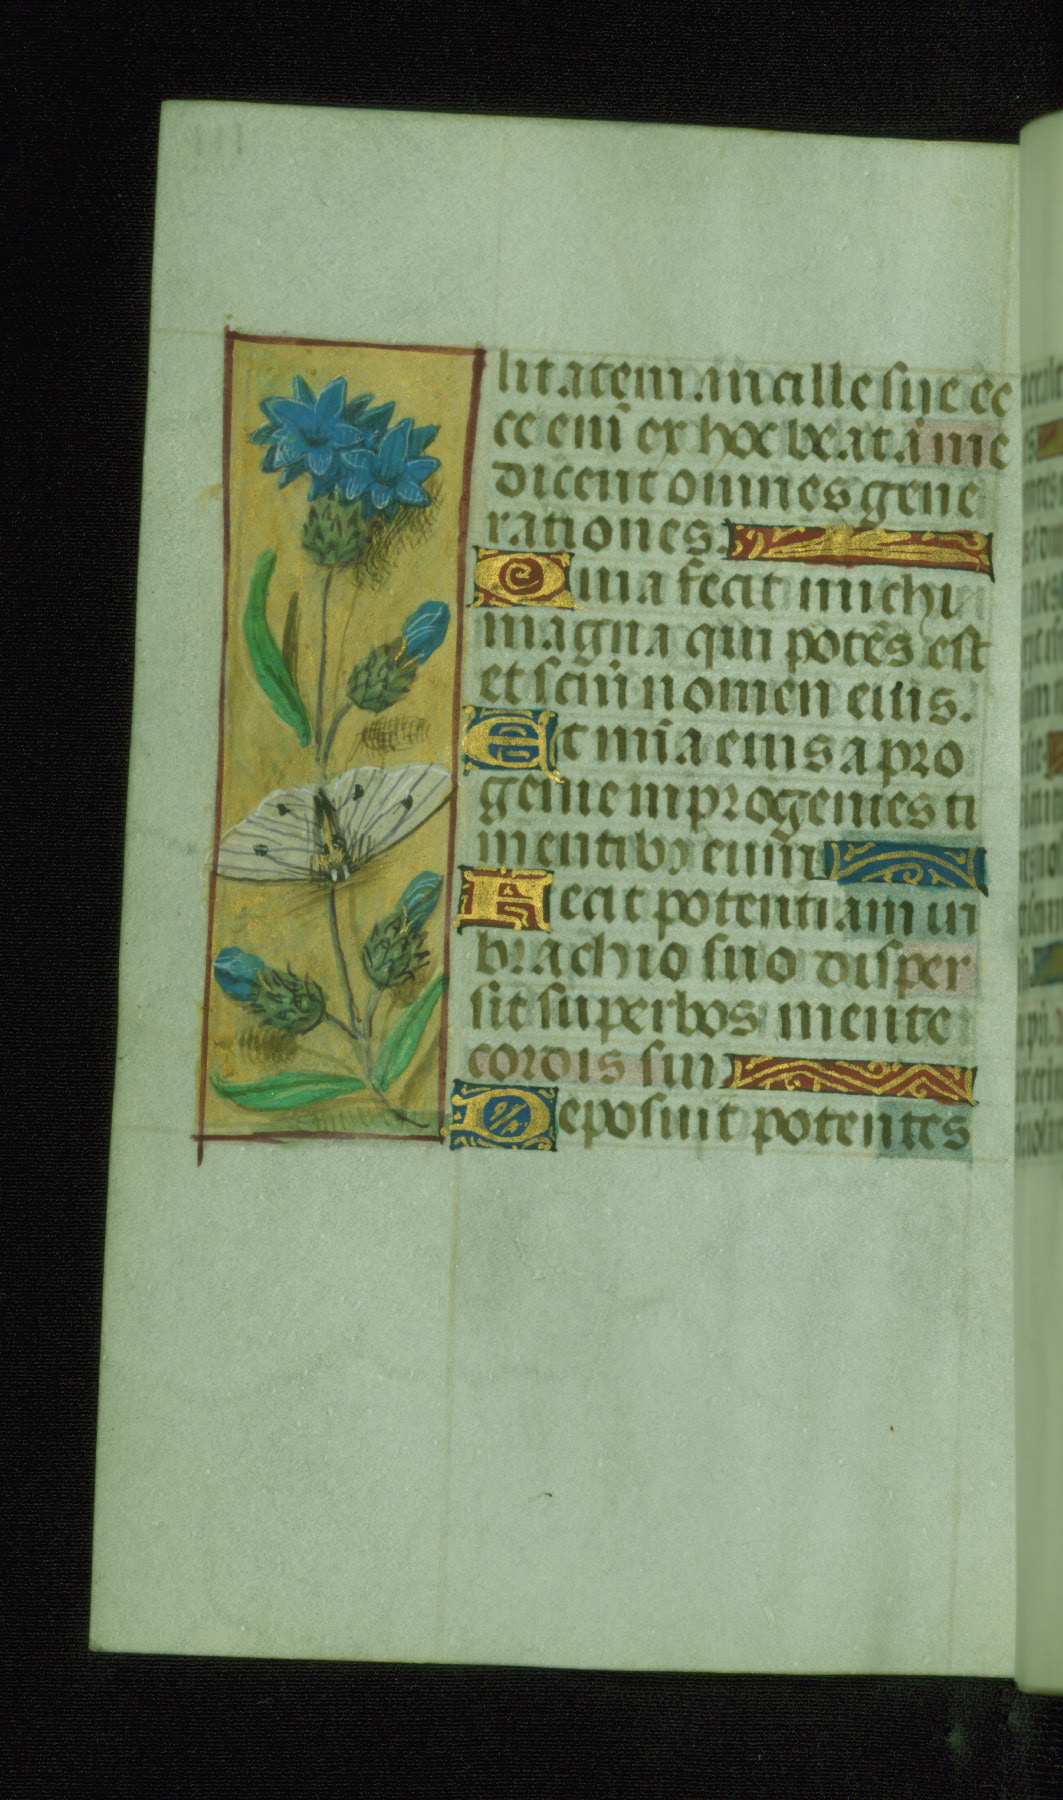 litatem ancille sue ec
ce eni̅ ex hoc beata̅ me
dicent omnes gene
rationes.
Quia fecit michi
magna qui pote̅s est
et sc̅m̅ nomen eius.
Et mi̅a eius a pro
genie in progenies ti
mentibꝰ eum
Fecit potentiam in
brachio suo disper
sit superbos mente
cordis sui
Deposuit potentes